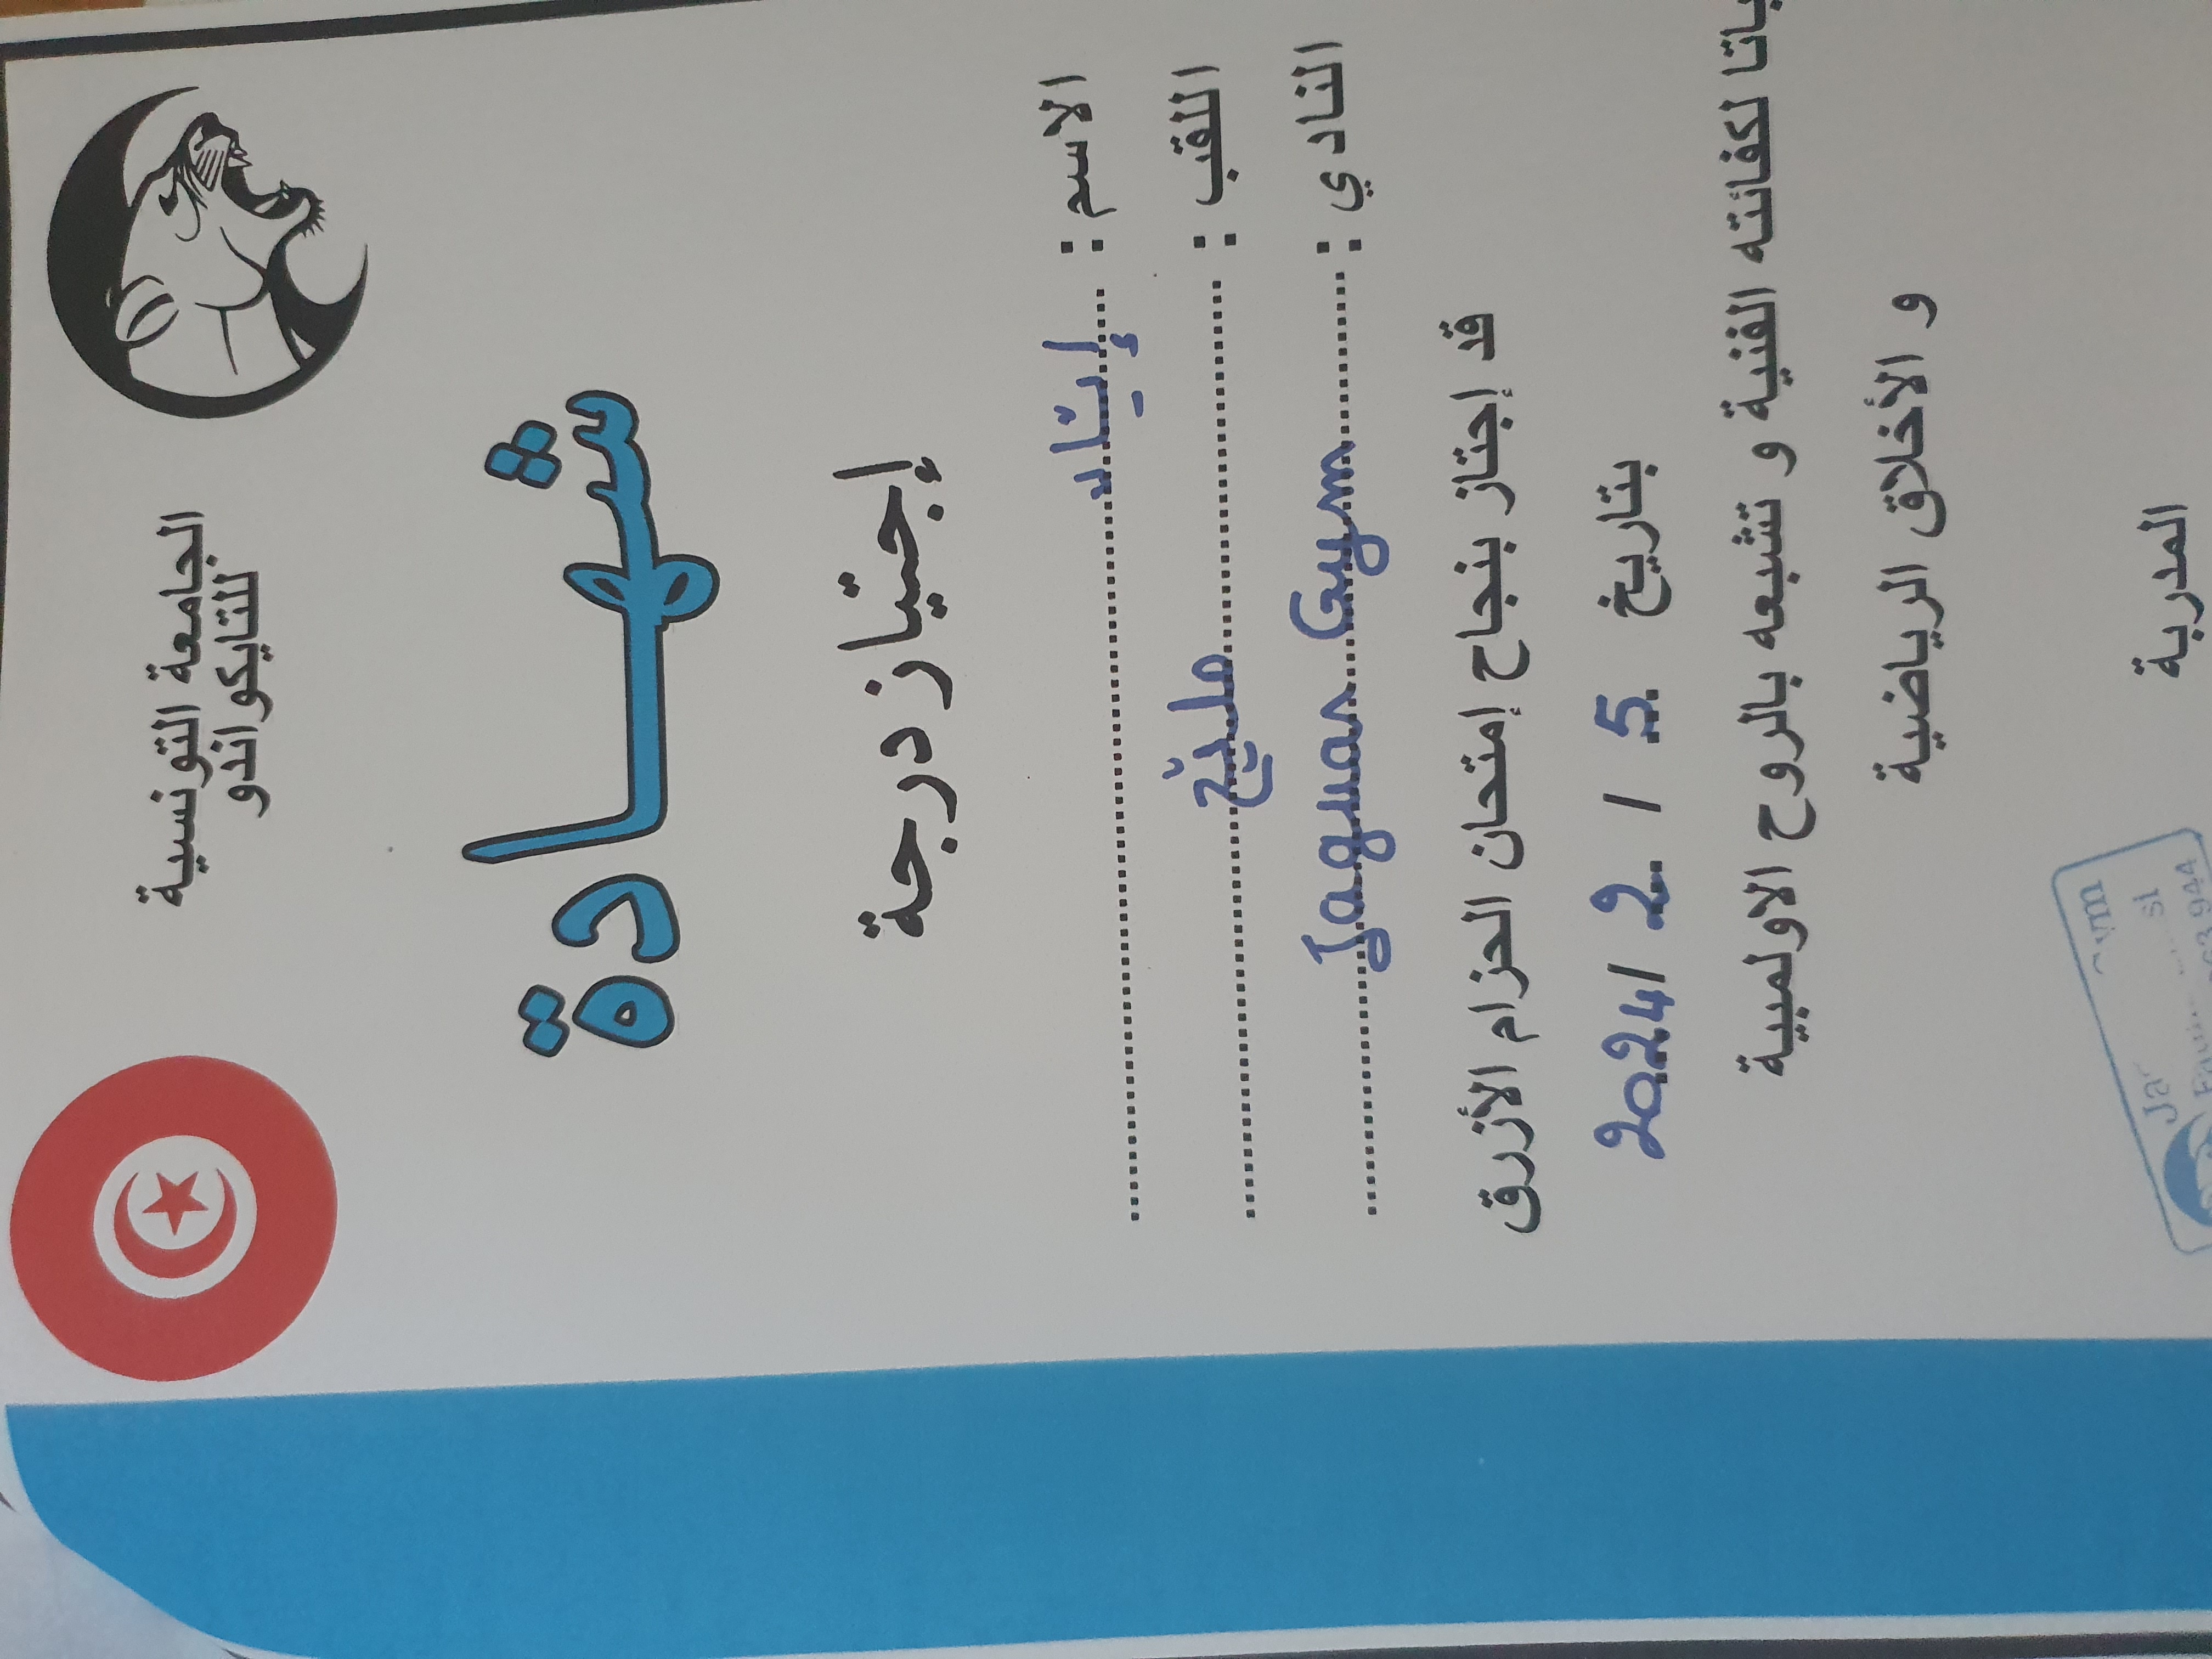 الجامعة التونسية
للتايكواندو
شهادة
إجتياز درجة
الاسم :
اللقب :
النادي : Jaguar Gym
قد إجتاز بنجاح إمتحان الحزام الأزرق
بتاريخ 5 / 2 / 2024
لكفائته الفنية و تشبعه بالروح الاولمبية
و الأخلاق الرياضية
المدربة